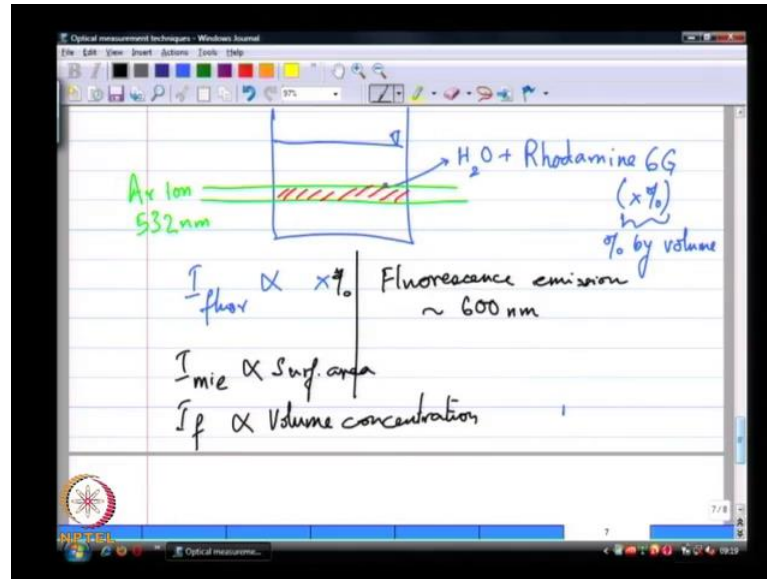 Optical measurement techniques - Windows Journal
File Edit View Insert Actions Tools Help
97%
H₂O + Rhodamine 6G
(x%)
% by volume
Ar Ion
532nm
I_fluor ∝ x%
Fluorescence emission
~ 600 nm
I_mie ∝ Surf. area
I_f ∝ Volume concentration
7/8
7
NPTEL
Optical measureme...
09:19